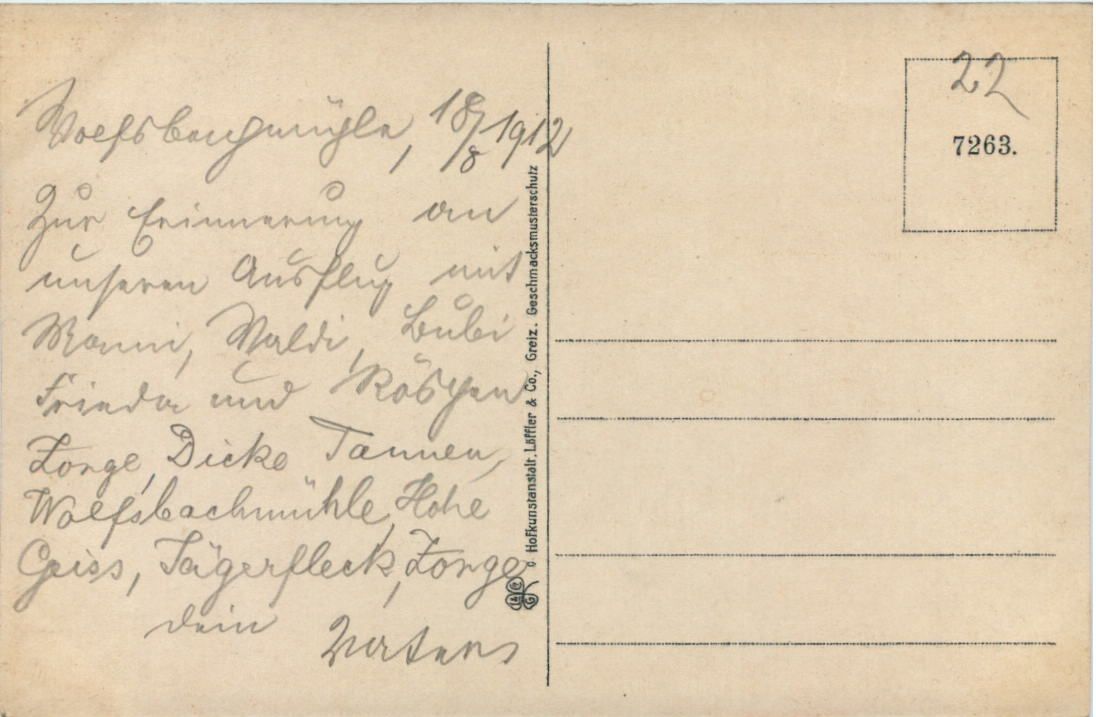 Wolfsbachmühle, 18/8 1912
Zur Erinnerung an
unseren Ausflug mit
Mami, Waldi, Bubi
Frieda und Röschen
Zorge, Dicke Tannen,
Wolfsbachmühle, Hohe
Geiss, Jägerfleck, Zorge
dein
© Hofkunstanstalt, Löffler & Co., Greiz. Geschmacksmusterschutz
22
7263.